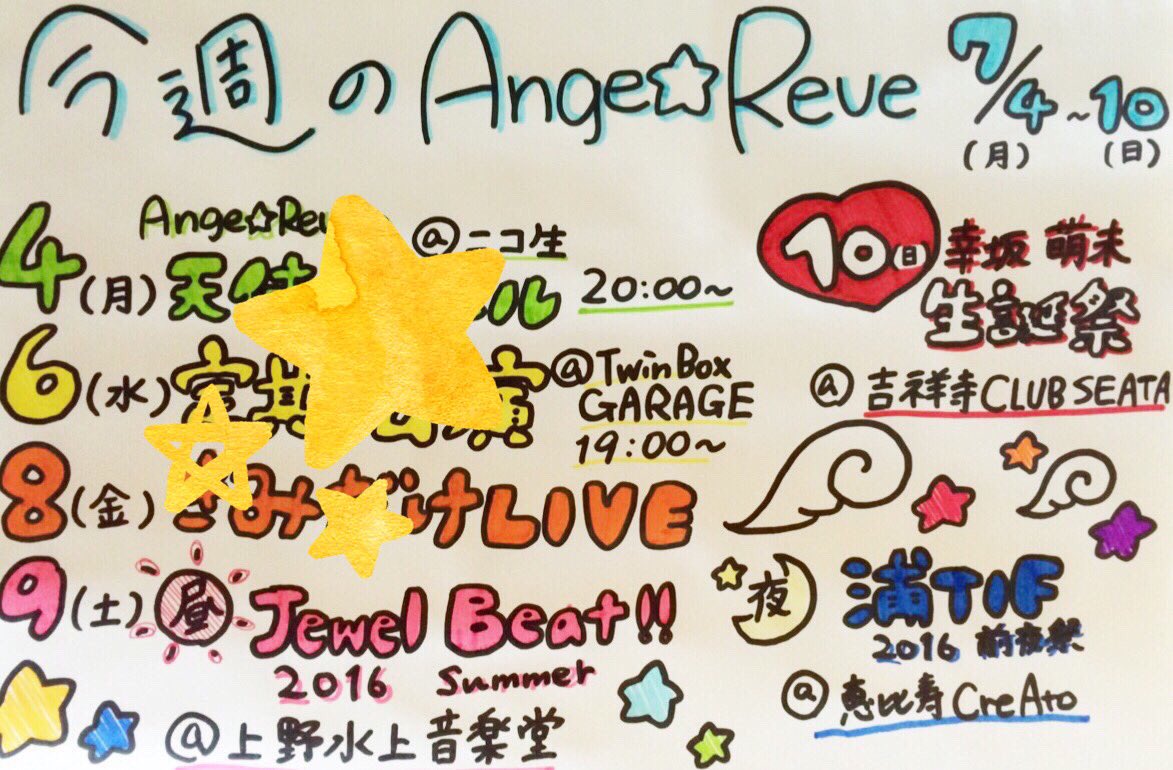 今週のAnge☆Reve 7/4~10
(月) (日)
Ange☆Re
@ニコ生
4(月) 天使 ル 20:00~
6(水) 定期公演 @TwinBox
GARAGE
19:00~
8(金) LIVE
9(土) 昼 Jewel Beat!!
2016 Summer
@上野水上音楽堂
10日 幸坂 萌未
生誕祭
@吉祥寺CLUB SEATA
夜 浦TIF
2016 前夜祭
@恵比寿CreAto